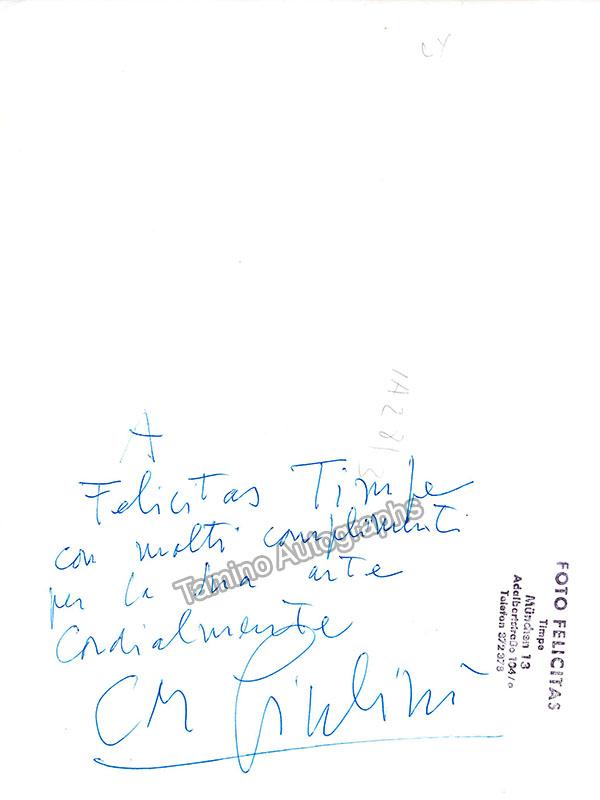 A
Felicitas Timpe
con molti complimenti
per la sua arte
Cordialmente
CM Giulini
Tamino Autographs
FOTO FELICITAS
Timpe
München 13
Adelbertstraße 104/o
Telefon 372 378